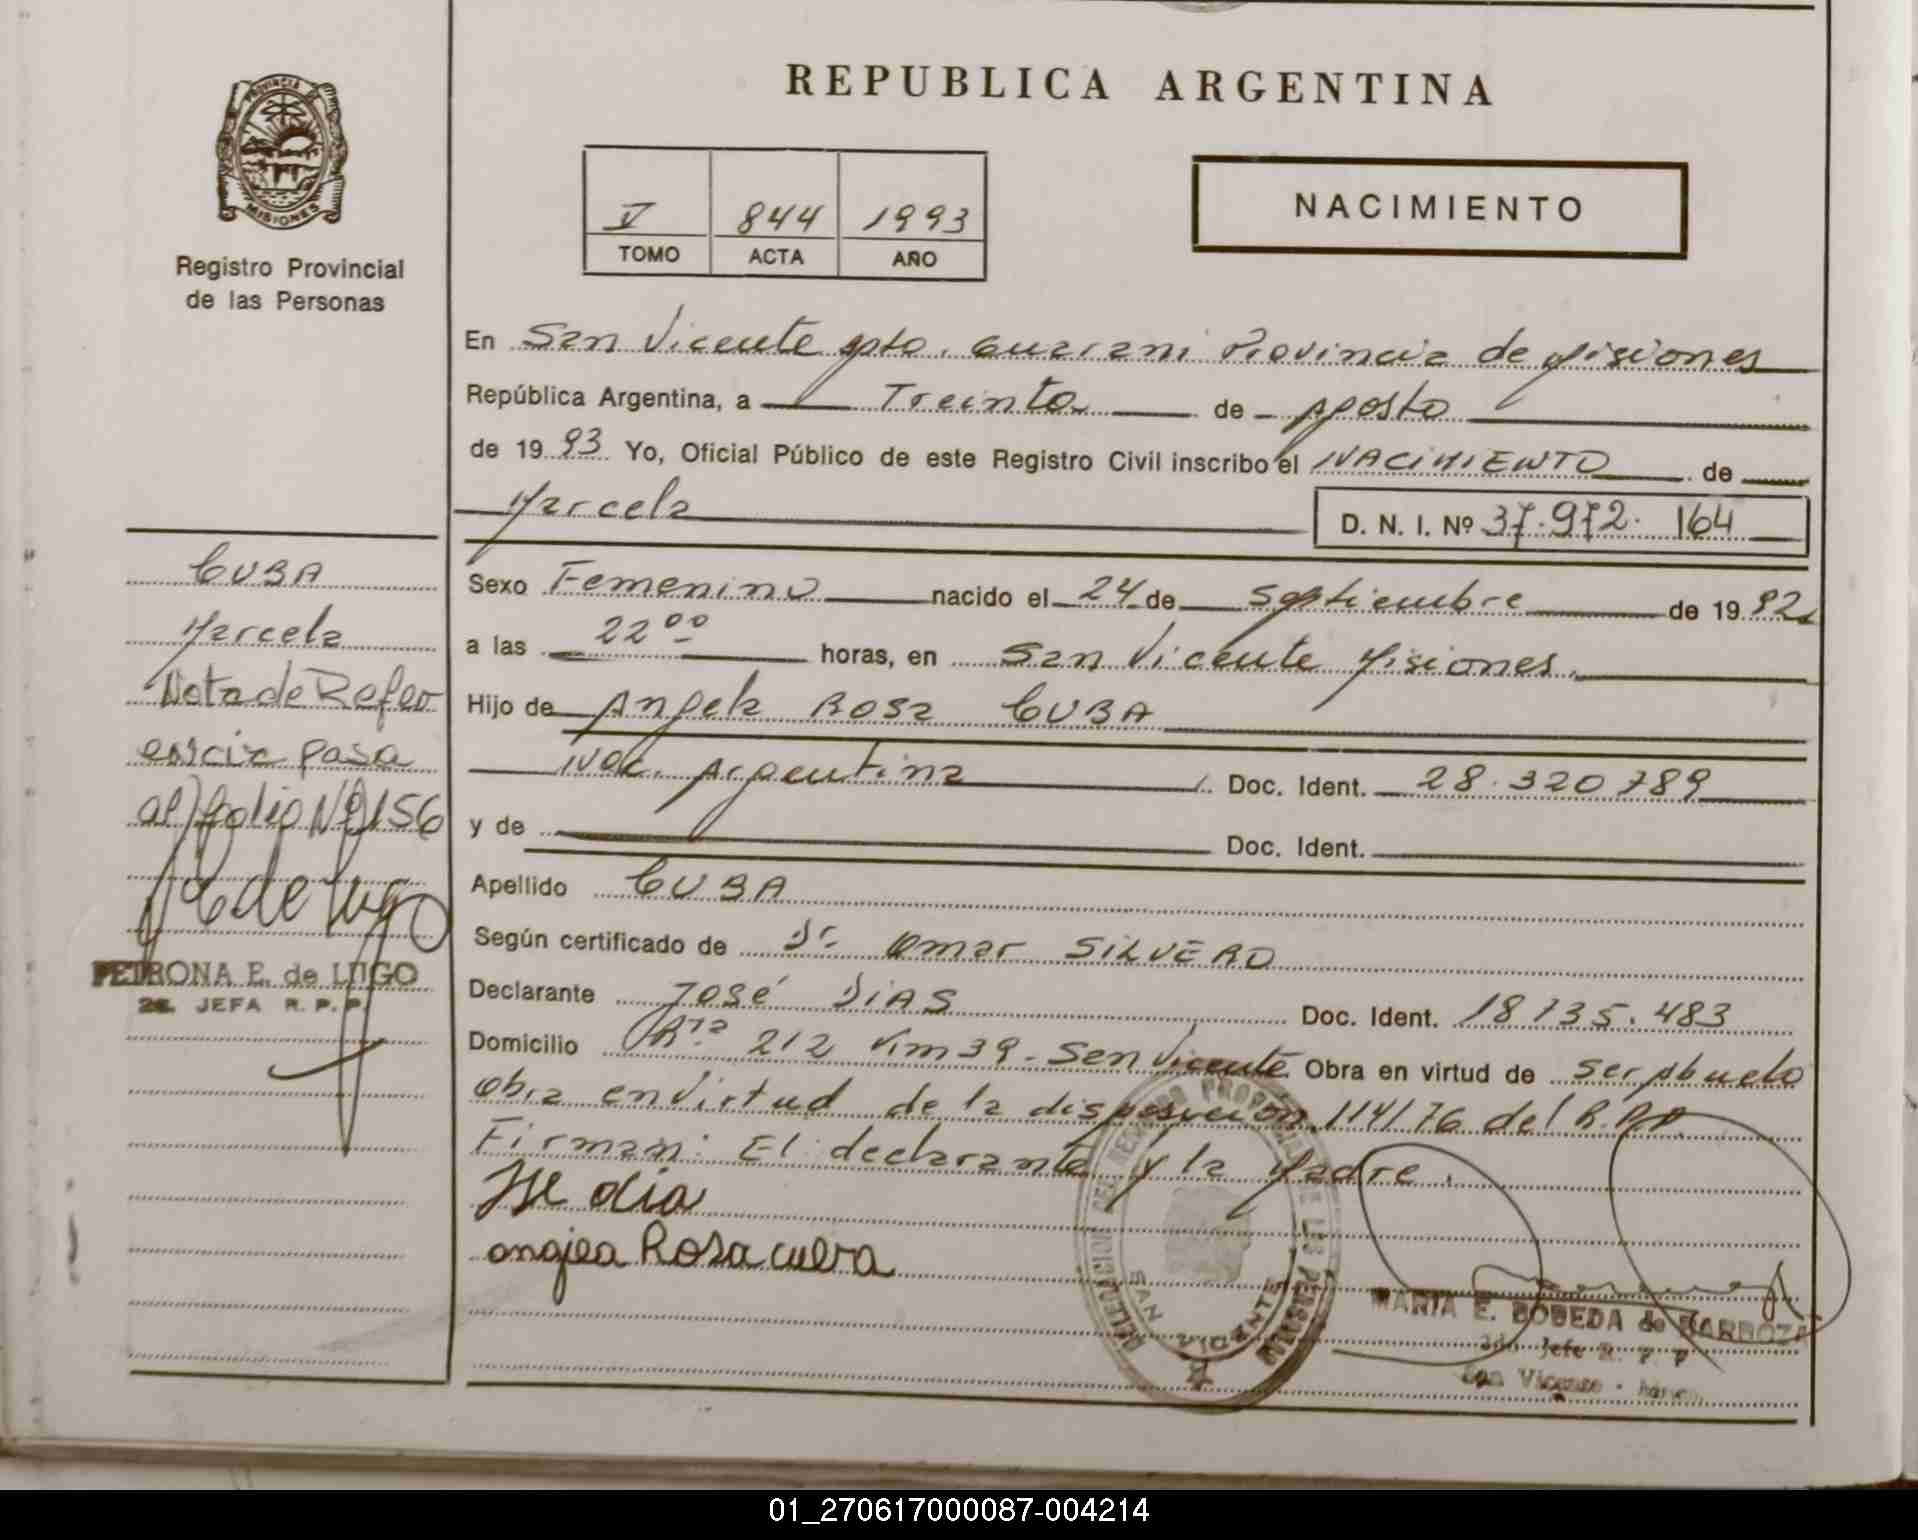 REPUBLICA ARGENTINA
PROVINCIA DE MISIONES
Registro Provincial
de las Personas
V 844 1993
TOMO ACTA AÑO
NACIMIENTO
En San Vicente Dpto. Guarani Provincia de Misiones
República Argentina, a Treinta de Agosto
de 1993 Yo, Oficial Público de este Registro Civil inscribo el NACIMIENTO de
Marcela
D. N. I. Nº 37.972.164
Sexo Femenino nacido el 24 de Septiembre de 1992
a las 22 00 horas, en San Vicente Misiones.
Hijo de Angela Rosa CUBA
Nac. Argentina Doc. Ident. 28.320789
y de Doc. Ident.
Apellido CUBA
Según certificado de Dr. Omar SILVERO
Declarante JOSÉ DIAS Doc. Ident. 18735.483
Domicilio Rta 212 Km 39 - San Vicente. Obra en virtud de ser Abuelo
Obra en virtud de la disposición 114/76 del R.P.P.
Firman: El declarante y la Madre.
Jse dia
angiea Rosa cuba
MARIA E. BOBEDA de BARBOZA
Jefe R. P. P.
San Vicente - Misiones
DELEGACION DEL REGISTRO PROVINCIAL DE LAS PERSONAS
SAN VICENTE
CUBA
Marcela
Nota de Refer
encia pasa
al folio Nº 156
PETRONA E. de LUGO
2a. JEFA R. P. P.
01_270617000087-004214